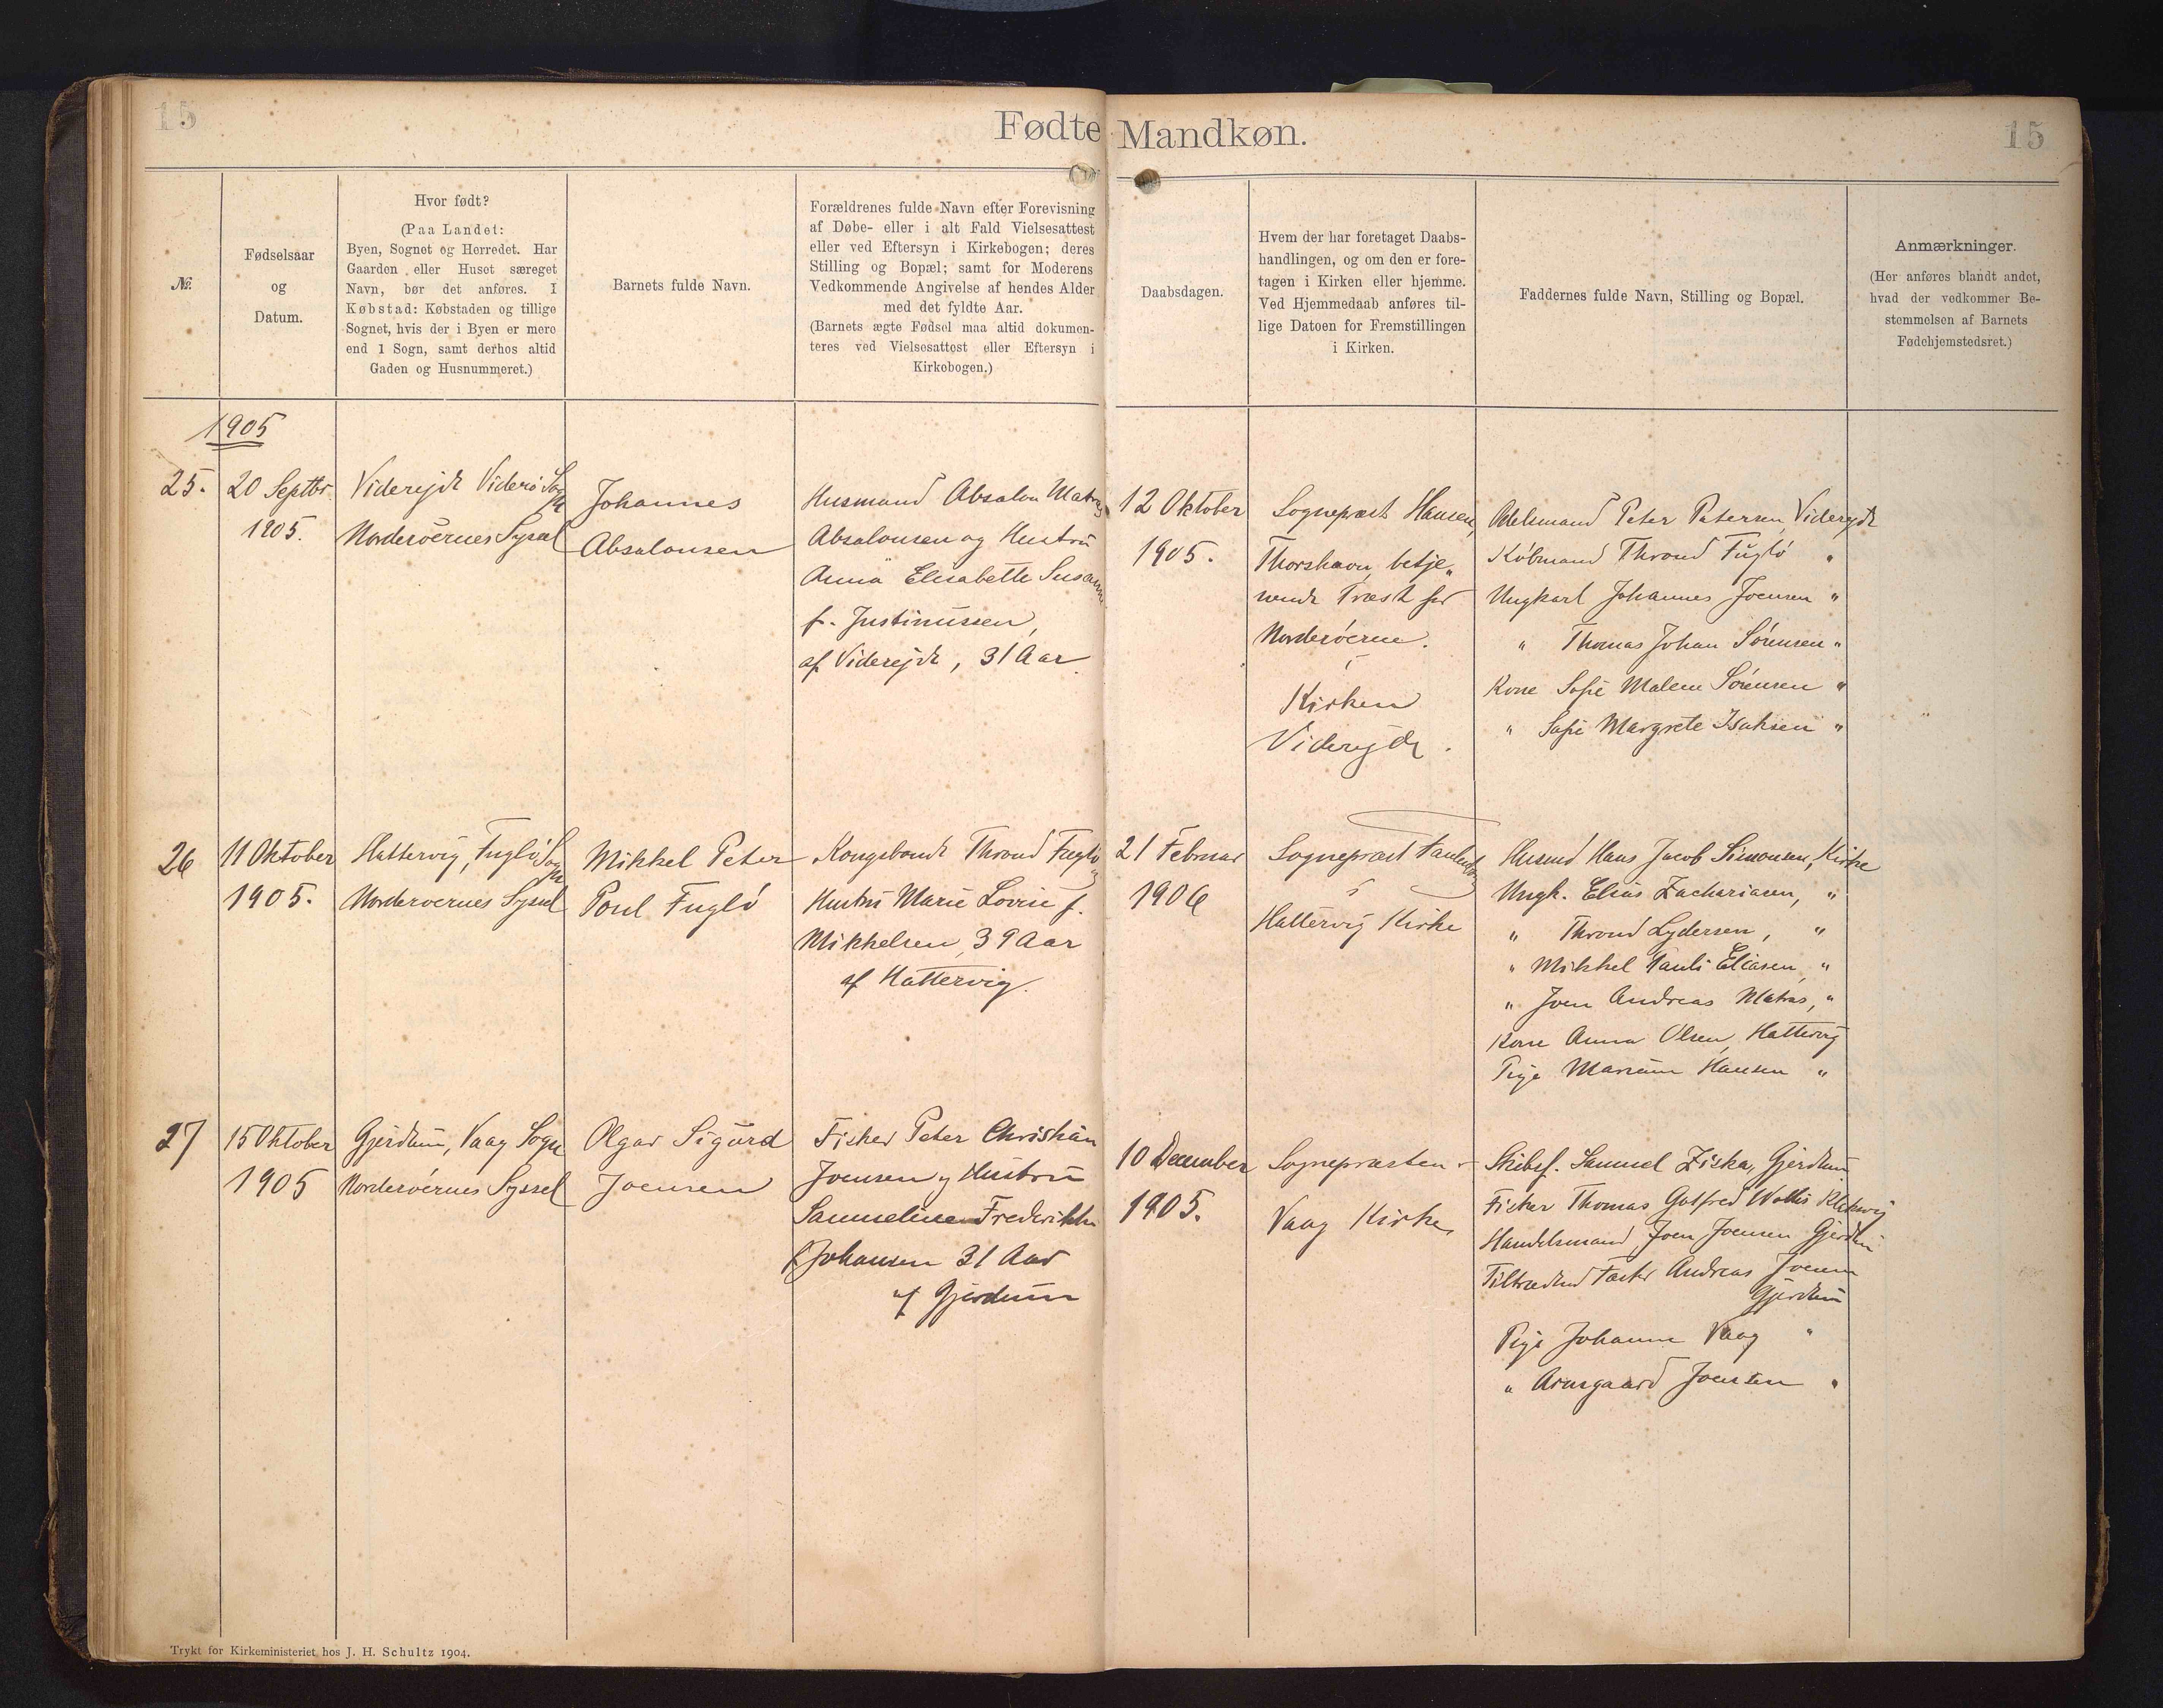 15
Fødte Mandkøn.
15
№
Fødselsaar
og
Datum.
Hvor født?
(Paa Landet:
Byen, Sognet og Herredet. Har
Gaarden eller Huset særeget
Navn, bør det anføres. I
Købstad: Købstaden og tillige
Sognet, hvis der i Byen er mere
end 1 Sogn, samt derhos altid
Gaden og Husnummeret.)
Barnets fulde Navn.
Forældrenes fulde Navn efter Forevisning
af Døbe- eller i alt Fald Vielsesattest
eller ved Eftersyn i Kirkebogen; deres
Stilling og Bopæl; samt for Moderens
Vedkommende Angivelse af hendes Alder
med det fyldte Aar.
(Barnets ægte Fødsel maa altid dokumen-
teres ved Vielsesattest eller Eftersyn i
Kirkebogen.)
Daabsdagen.
Hvem der har foretaget Daabs-
handlingen, og om den er fore-
tagen i Kirken eller hjemme.
Ved Hjemmedaab anføres til-
lige Datoen for Fremstillingen
i Kirken.
Faddernes fulde Navn, Stilling og Bopæl.
Anmærkninger.
(Her anføres blandt andet,
hvad der vedkommer Be-
stemmelsen af Barnets
Fødehjemstedsret.)
1905
25.
20 Septbr
1905.
Viderejde Viderø Sogn
Norderøernes Syssel
Johannes
Absalonsen
Husmand Absalon Matras
Absalonsen og Hustru
Anna Elisabette Susanne
f. Justinussen,
af Viderejde, 31 Aar
12 Oktober
1905.
Sognepræst Hansen,
Thorshavn, betje„
nende Præst for
Norderøerne.
i
Kirken
Viderejde.
Odelsmand Peter Petersen, Viderejde
Købmand Thrond Fuglø "
Ungkarl Johannes Joensen "
" Thomas Johan Sørensen "
Kone Sofie Malene Sørensen "
" Sofie Margrete Isaksen "
26
11 Oktober
1905.
Hattervig, Fuglø Sogn
Norderøernes Syssel
Mikkel Peter
Poul Fuglø
Kongsbonde Thrond Fuglø og
Hustru Marie Lovise f.
Mikkelsen, 39 Aar
af Hattervig.
21 Februar
1906
Sognepræst
i
Hattervig Kirke
Husmd Hans Jacob Simonsen, Kirke
Ungk. Elias Zachariasen, "
" Thrond Lydersen, "
" Mikkel Pauli Eliasen, "
" Joen Andreas Matras, "
Kone Anna Olsen, Hattervig
Pige Mariane Hansen "
27
15 Oktober
1905
Gjerdum, Vaag Sogn
Norderøernes Syssel
Olgar Sigurd
Joensen
Fisker Peter Christian
Joensen og Hustru
Samueline Frederikke
f Johansen 31 Aar
af Gjerdum
10 December
1905.
Sognepræsten i
Vaag Kirke
Skibsf. Samuel Ziska, Gjerdum
Fisker Thomas Gotfred Wallis Klaksvig
Handelsmand Joen Joensen Gjerdum
Andreas Joensen
Gjerdum
Pige Johanne Vaag "
" Armgaard Joensen "
Trykt for Kirkeministeriet hos J. H. Schultz 1904.